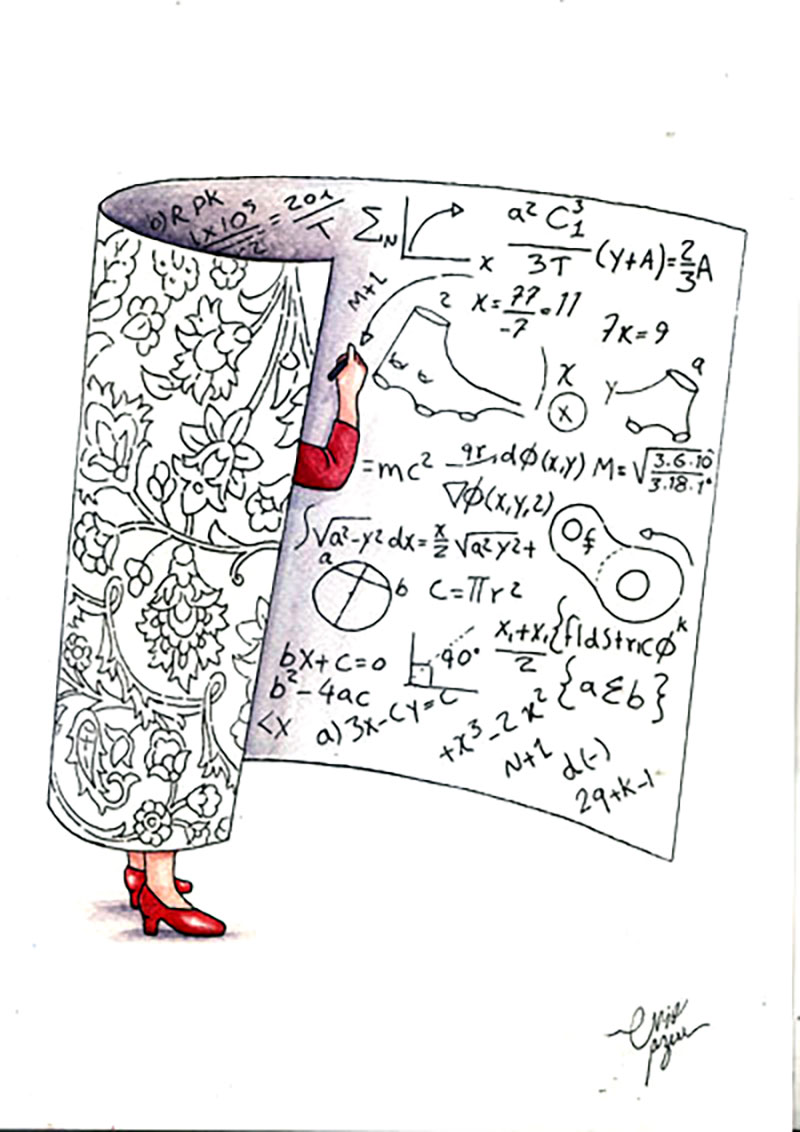 b) R PK
1x10⁵/12 = 20x/T
Σ_N
x
a² C₁³ / 3T (Y+A) = 2/3 A
M+1
2
x = 77/-7 = 11
7x = 9
x
x
Y
a
= mc²
dϕ(x,y)
M = √(3.6.10/3.18.1)
∇ϕ(x,y,2)
∫√a²-y² dx = x/2 √a²y² +
f
a
b
C = πr²
bx+c=0
90°
x₁+x₁/2
{fldstricϕᵏ
b²-4ac
{aΣb}
<x
a) 3x-cy=c
+x³-2x²
N+1
d(-)
29+k-1